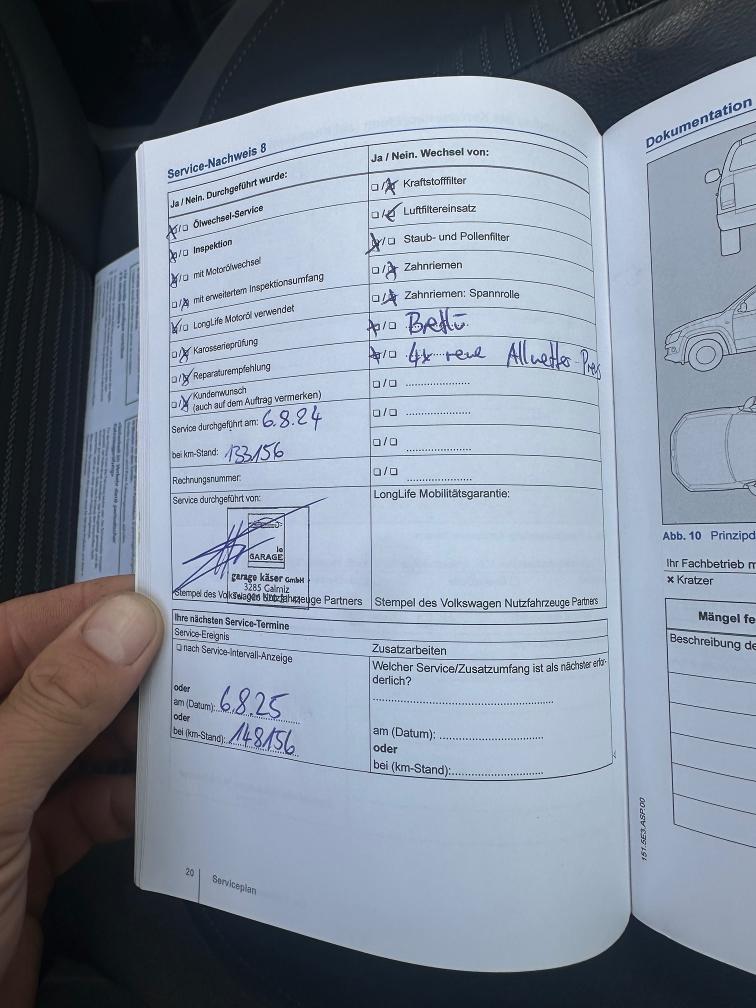 Service-Nachweis 8
Ja / Nein. Durchgeführt wurde:
Ölwechsel-Service
Inspektion
mit Motorölwechsel
mit erweitertem Inspektionsumfang
LongLife Motoröl verwendet
Karosserieprüfung
Reparaturempfehlung
Kundenwunsch
(auch auf dem Auftrag vermerken)
Service durchgeführt am: 6.8.24
bei km-Stand: 133156
Rechnungsnummer:
Service durchgeführt von:
le
GARAGE
garage käser GmbH
3285 Galmiz
Stempel des Volkswagen Nutzfahrzeuge Partners
Ja / Nein. Wechsel von:
Kraftstofffilter
Luftfiltereinsatz
Staub- und Pollenfilter
Zahnriemen
Zahnriemen: Spannrolle
4x neue Allwetter
LongLife Mobilitätsgarantie:
Stempel des Volkswagen Nutzfahrzeuge Partners
Ihre nächsten Service-Termine
Service-Ereignis
nach Service-Intervall-Anzeige
oder
am (Datum): 6.8.25
oder
bei (km-Stand): 148156
Zusatzarbeiten
Welcher Service/Zusatzumfang ist als nächster erfor-
derlich?
am (Datum):
oder
bei (km-Stand):
20
Serviceplan
Dokumentation
Abb. 10 Prinzipd
Ihr Fachbetrieb m
× Kratzer
Mängel fe
Beschreibung de
151.5E3.ASP.00